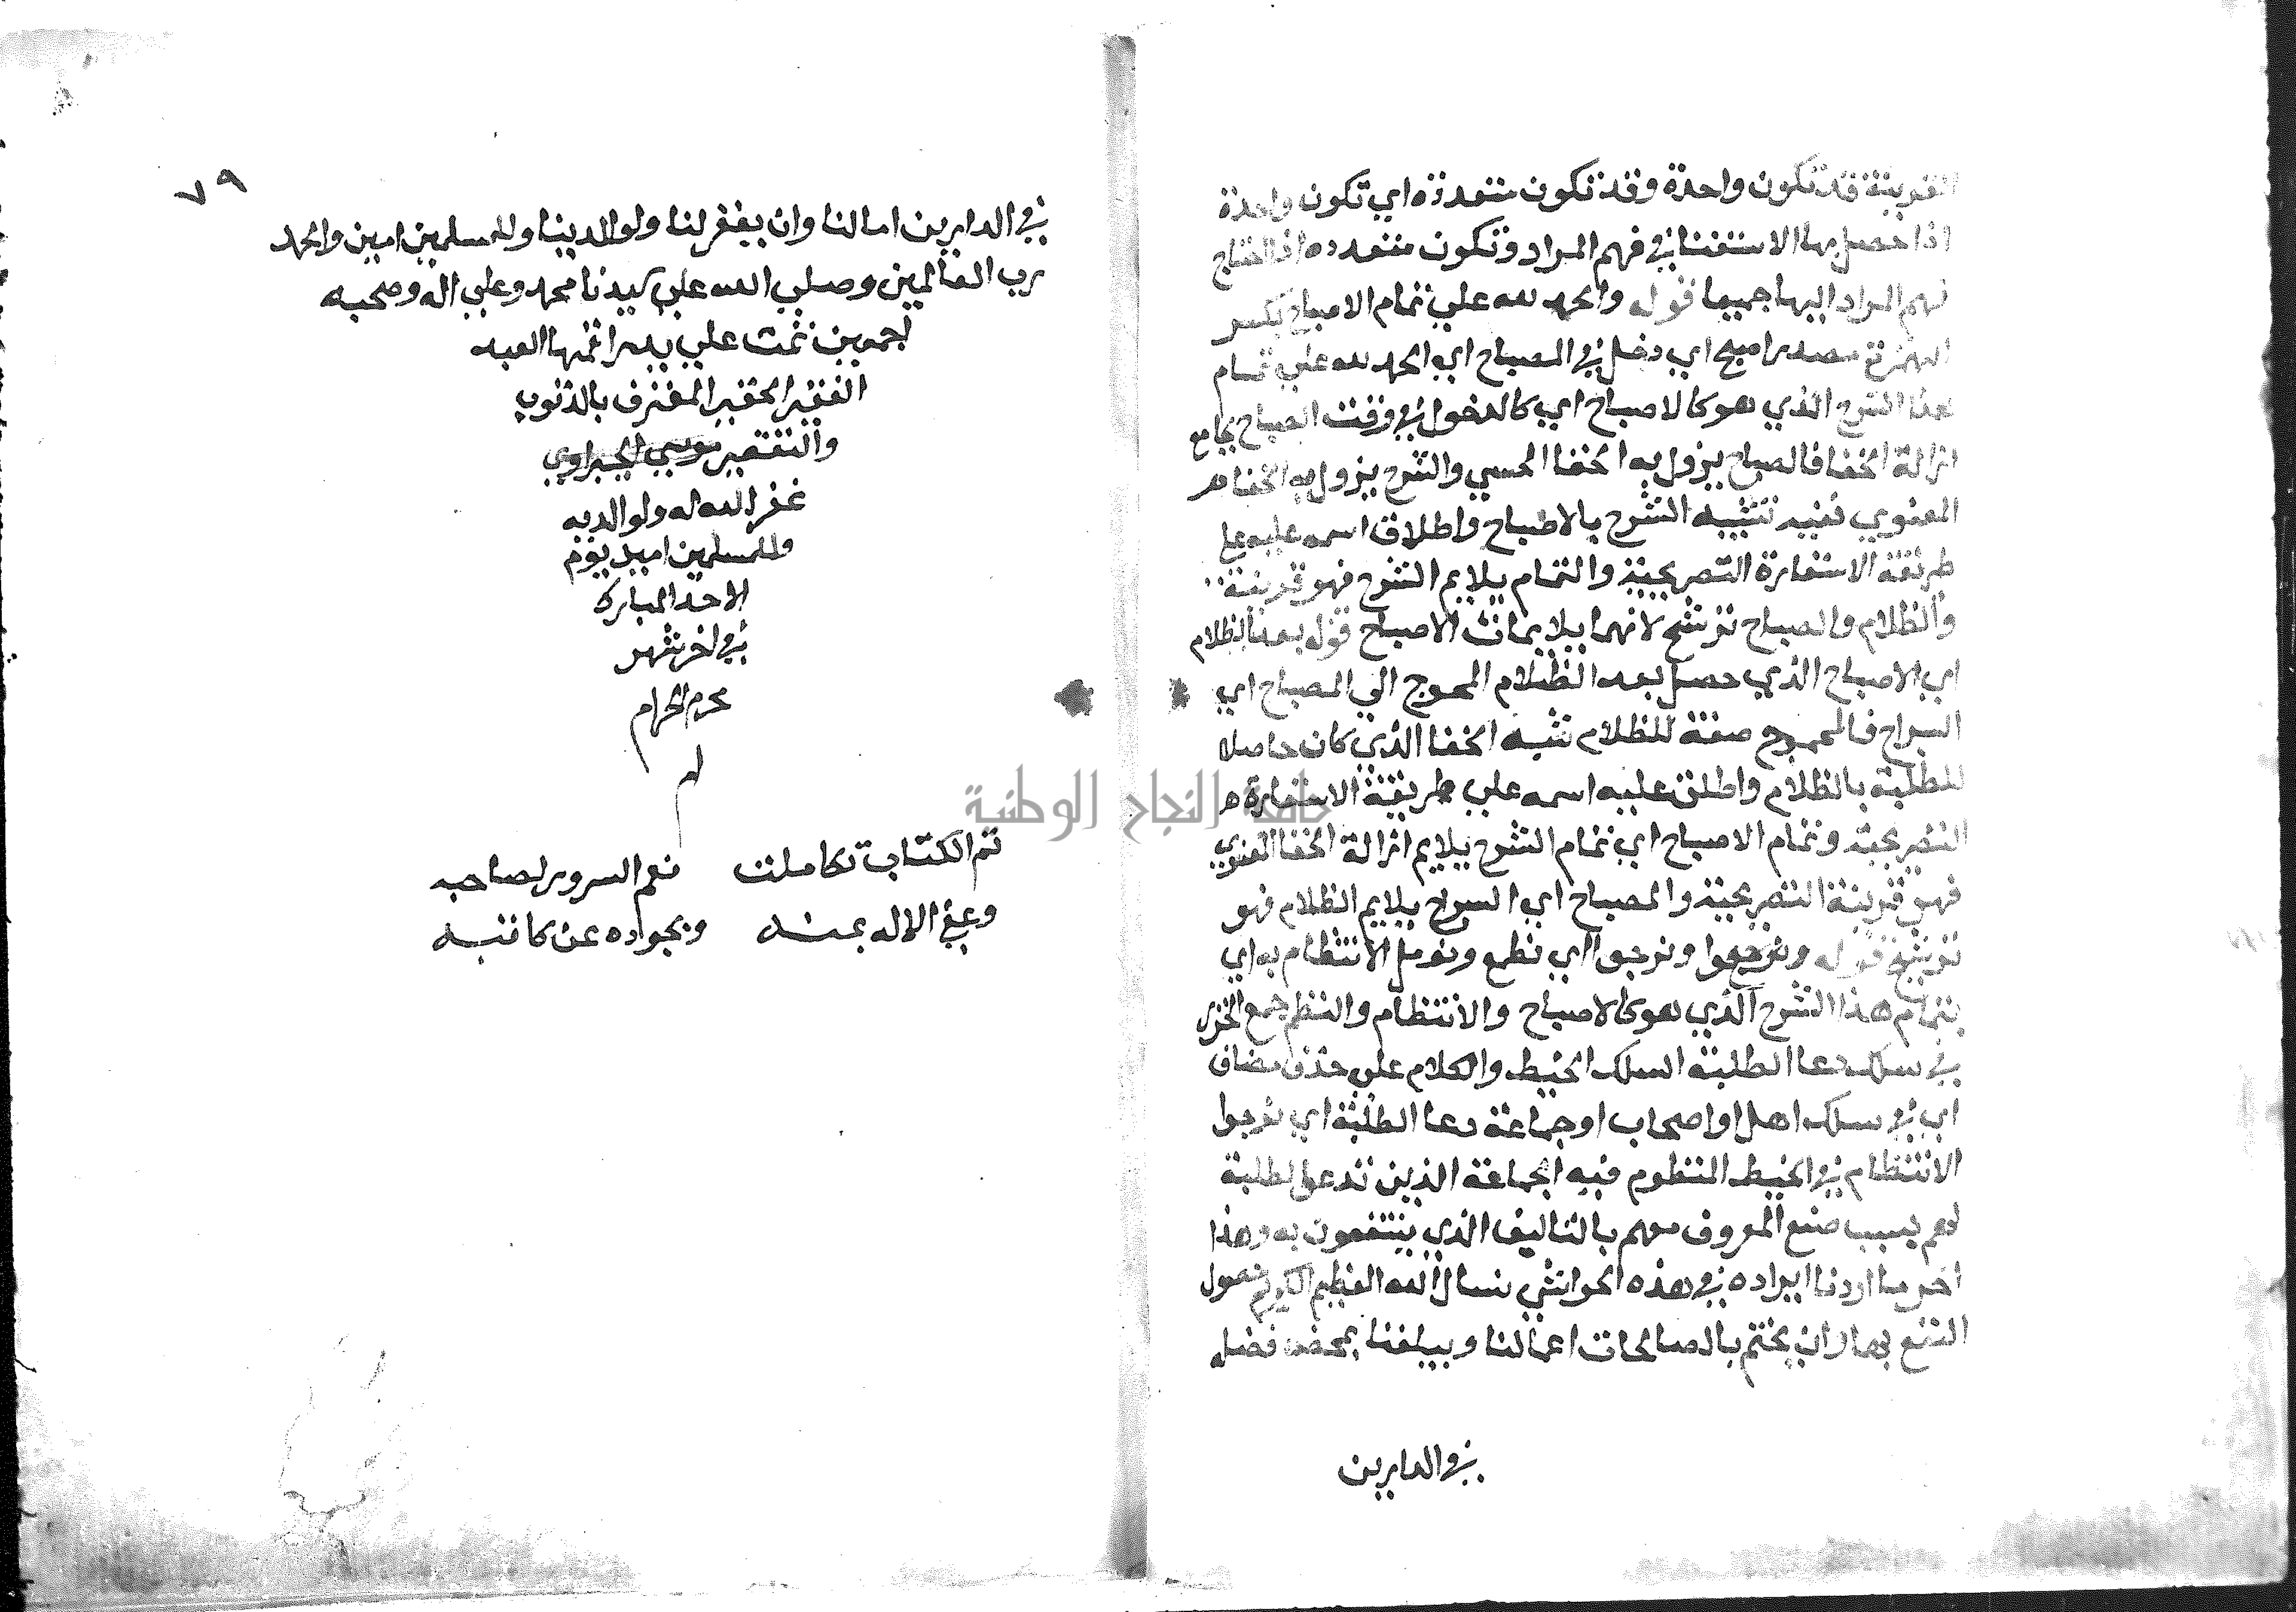 القرينة قد تكون واحدة وقد تكون متعددة اي تكون واحدة
اذا حصل بها الاستغنا في فهم المراد وتكون متعدده اذا احتاج
فهم المراد اليها جميها قوله والحمد لله علي تمام الاصباح بكسر
الهمزة مصدر اصبح اي دخل في المصباح اي الحمد لله علي تمام
هذا الشرح الذي هو كالاصباح اي كالدخول في وقت الصباح بجامع
ازالة الخفا فالصباح يزول به الخفا الحسي والشرح يزول به الخفا
المعنوي تشبيه الشرح بالاصباح واطلاق اسمه عليه علي
طريقة الاستعارة التصريحية والتمام يلايم الشرح فهو قرينة
والظلام والصباح ترشيح لانهما يلايمان الاصباح قوله بعد الظلام
اي الاصباح الذي حصل بعد الظلام المحوج الي المصباح اي
السراج فالمحوج صفة للظلام شبه الخفا الذي كان حاصلا
للطلبة بالظلام واطلق عليه اسمه علي طريقة الاستعارة
التصريحية وتمام الاصباح اي تمام الشرح يلايم ازالة الخفا المعنوي
فهو قرينة التصريحية والمصباح اي السراج يلايم الظلام فهو
ترشيح قوله ونرجوا اي نطمع ونومل الانتظام به اي
بتمام هذا الشرح الذي هو كالاصباح والانتظام والنظم جمع الخرز
في سلك دعا الطلبة السلك الخيط والكلام علي حذف مضاف
اي في سلك اهل او اصحاب او جماعة دعا الطلبة اي نرجوا
الانتظام في الخيط المنظوم فيه الجماعة الذين تدعوا لطلبة
لهم بسبب صنع المعروف معهم بالتاليف الذي ينتفعون به وهذا
اخر ما اردنا ايراده في هذه الحواشي نسال الله العظيم الكريم
النفع بها وان يختم بالصالحات اعمالنا ويبلغنا بمحض فضله
في الدارين
٧٩
في الدارين امالنا وان يغفر لنا ولوالدينا وللمسلمين امين والحمد
رب العالمين وصلي الله علي سيدنا محمد وعلي اله وصحبه
اجمعين تمت علي يد راقمها العبد
الفقير الحقير المعترف بالذنوب
والتقصير موسي
غفر الله له ولوالديه
وللمسلمين امين يوم
الاحد المبارك
في اخر شهر
محرم الحرام
تم الكتاب تكاملت نعم السرور لصاحبه
وعفي الاله بمنه وبجوده عن كاتبه
جامعة النجاح الوطنية